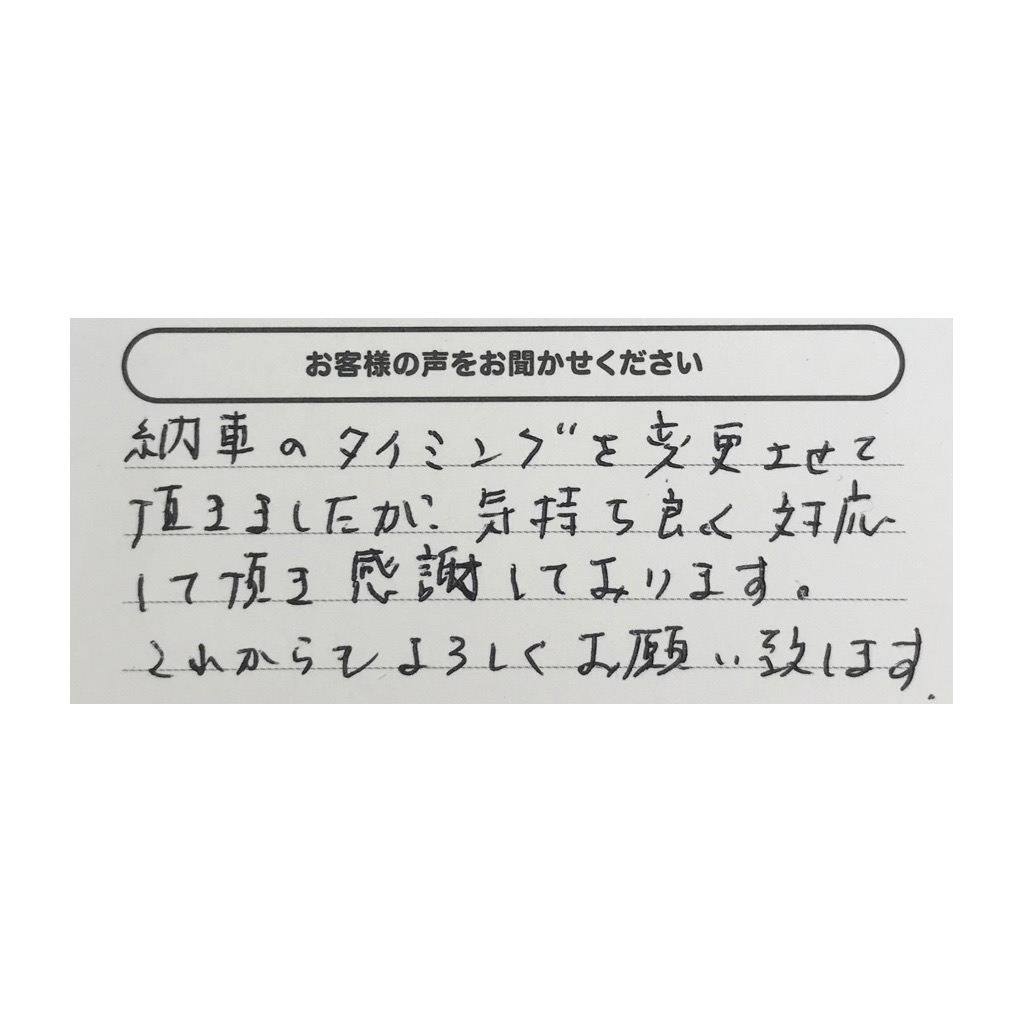 お客様の声をお聞かせください
納車のタイミングを変更させて
頂きましたが、気持ち良く対応
して頂き感謝しております。
これからもよろしくお願い致します.